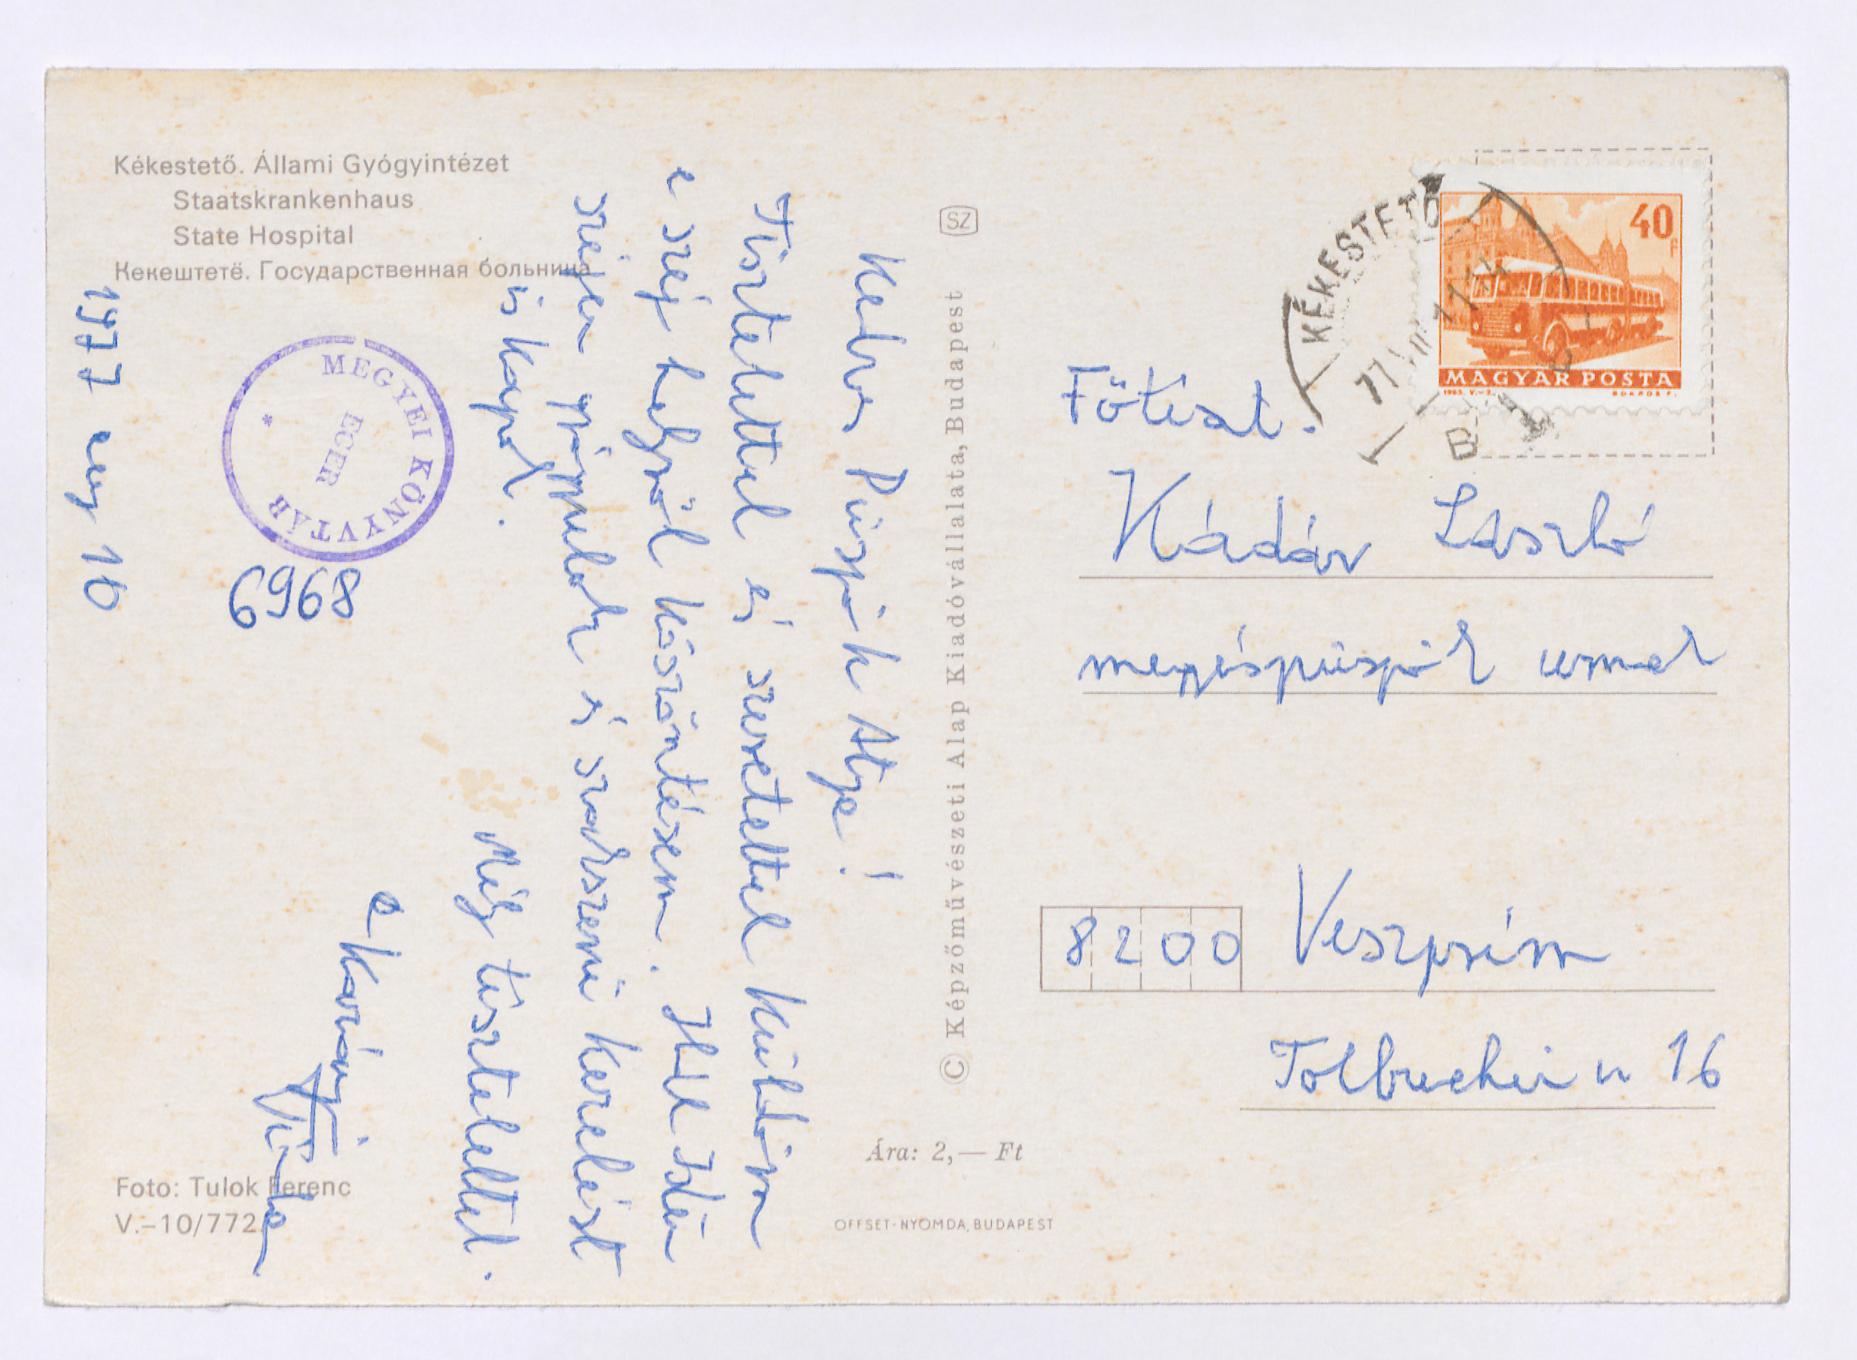 Kékestető. Állami Gyógyintézet
Staatskrankenhaus
State Hospital
Кекештетё. Государственная больница
Kedves Püspök Atya!
Tisztelettel és szeretettel küldöm
e szép helyről köszöntésem. Itt Isten
szépen gyógyulok és szakszerű kezelést
is kapok.
Mély tisztelettel
a
1977 aug 10
MEGYEI KÖNYVTÁR
EGER
6968
Foto: Tulok Ferenc
V.–10/772
SZ
© Képzőművészeti Alap Kiadóvállalata, Budapest
Ára: 2,— Ft
OFFSET-NYOMDA, BUDAPEST
KÉKESTETŐ
77
B
40 f
MAGYAR POSTA
Főtiszt.
Kádár László
megyéspüspök úrnak
8200 Veszprém
Tolbuchin u 16